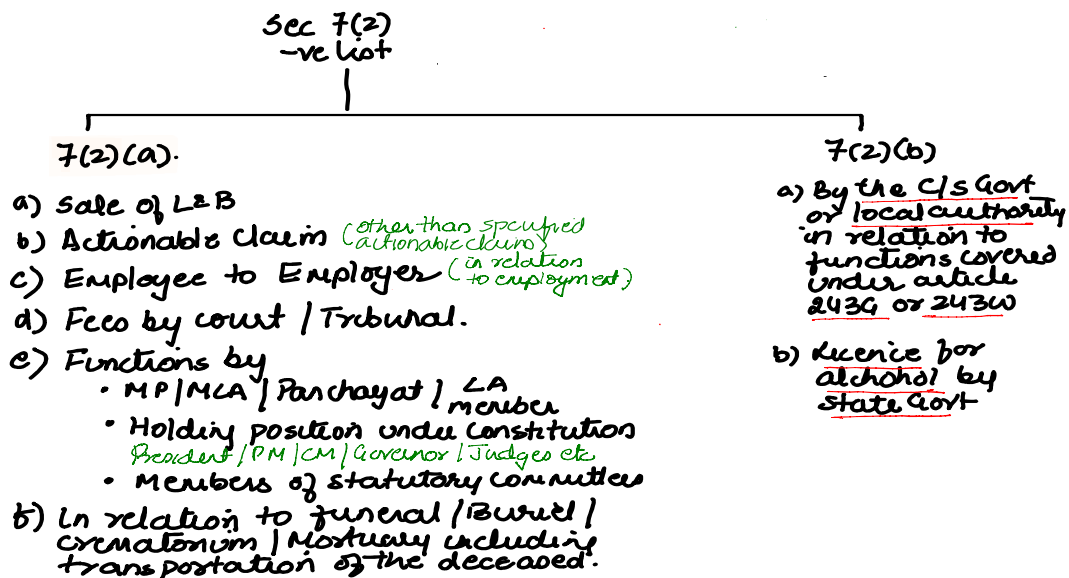 Sec 7(2)
-ve list
7(2)(a).
a) Sale of L&B
b) Actionable Claim (other than specified
actionable claim)
c) Employee to Employer (in relation
to employment)
d) Fees by court / Tribunal.
e) Functions by
• MP/MLA / Panchayat / LA
member
• Holding position under constitution
President / PM / CM / Governor / Judges etc
• Members of statutory committees
f) In relation to funeral / Buriel /
crematorium / Mortuary including
transportation of the deceased.
7(2)(b)
a) By the C/S Govt
or local authority
in relation to
functions covered
under article
243G or 243W
b) Licence for
alchohol by
state Govt